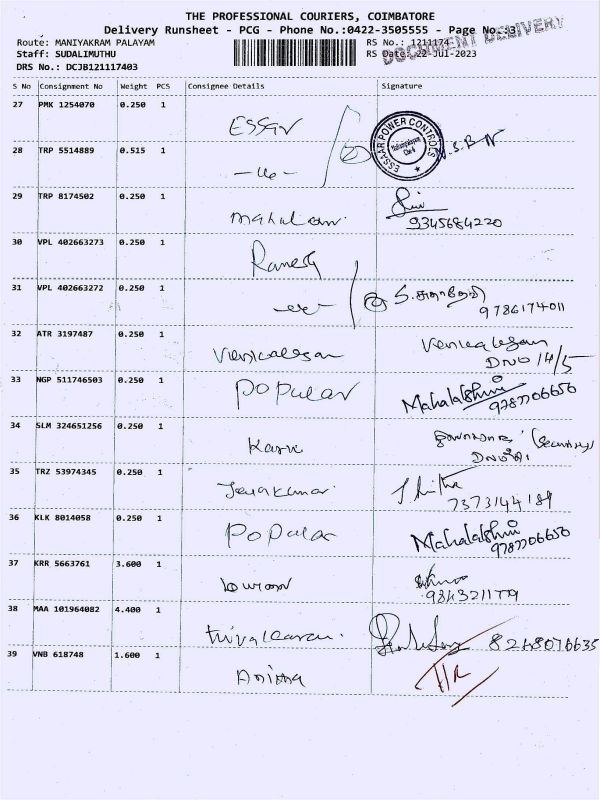 THE PROFESSIONAL COURIERS, COIMBATORE
Delivery Runsheet - PCG - Phone No.:0422-3505555 - Page No.:3
DOCUMENT DELIVERY
Route: MANIYAKRAM PALAYAM RS No.: 1211174
Staff: SUDALIMUTHU RS Date: 22-Jul-2023
DRS No.: DCJB121117403
S No Consignment No Weight PCS Consignee Details Signature
27 PMK 1254070 0.250 1 ESSAR
ESSAAR POWER CONTROLS
28 TRP 5514889 0.515 1
29 TRP 8174502 0.250 1
9345684220
30 VPL 402663273 0.250 1 Ramesh
31 VPL 402663272 0.250 1
9786174011
32 ATR 3197487 0.250 1
DNO 14/5
33 NGP 511746503 0.250 1 Popular Mahalakshmi
9787706650
34 SLM 324651256 0.250 1
(Security)
35 TRZ 53974345 0.250 1 Jeyakumar
7373144189
36 KLK 8014058 0.250 1 Popular Mahalakshmi
9787706650
37 KRR 5663761 3.600 1
9843211779
38 MAA 101964082 4.400 1 8248076635
39 VNB 618748 1.600 1 Anitha